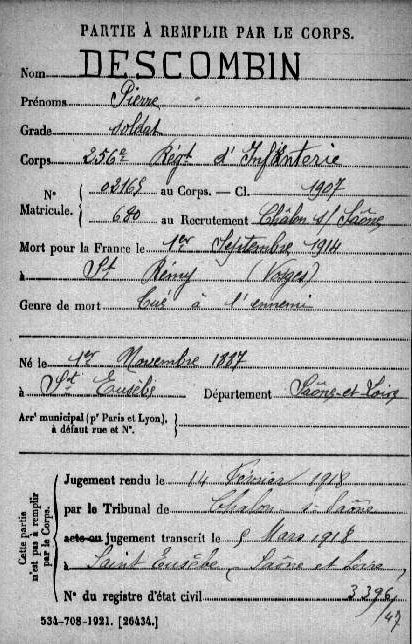 PARTIE À REMPLIR PAR LE CORPS.
Nom DESCOMBIN
Prénoms Pierre
Grade soldat
Corps 256e Régt d'Infanterie
N° Matricule. { 02165 au Corps. — Cl. 1907
680 au Recrutement Châlon s/ Saône
Mort pour la France le 1er Septembre 1914
à St Rémy (Vosges)
Genre de mort Tué à l'ennemi
Né le 1er Novembre 1887
à St Eusèbe Département Saône-et-Loire
Arrt municipal (pr Paris et Lyon), à défaut rue et N°. }
Cette partie n'est pas à remplir par le Corps. {
Jugement rendu le 14 Février 1918
par le Tribunal de Chalon s. Saône
acte ou jugement transcrit le 5 Mars 1918
à Saint Eusèbe, Saône et Loire,
N° du registre d'état civil 3396/47
534-708-1921. [26434.]